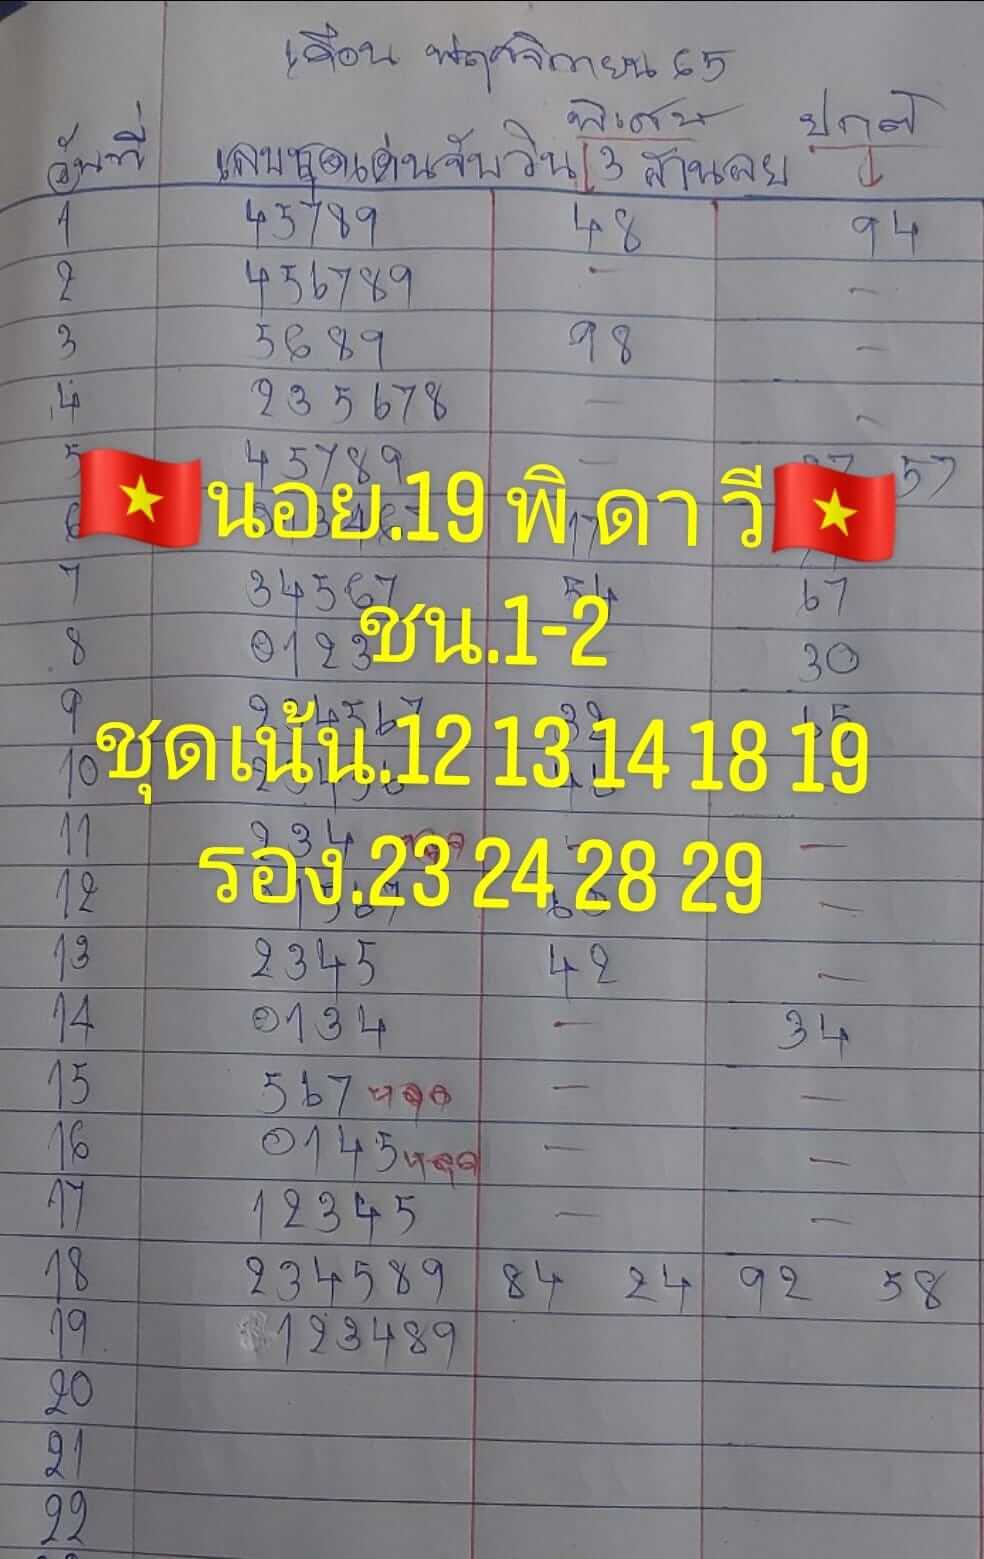 เดือน พฤศจิกายน 65
วันที่ เลขชุดเด่นจับวิน 3 สานลย พิเศษ ปกติ
1 45789 48 94
2 456789 - -
3 5689 98 -
4 235678 - -
5 45789 - 57
🇻🇳นอย.19 พิ ดา วี🇻🇳
6 17
7 34567 54 67
ชน.1-2
8 0123 30
9 234567 32 65
ชุดเน้น.12 13 14 18 19
10 23456 46
11 234 หลุด - -
รอง.23 24 28 29
12 01567 60 -
13 2345 42 -
14 0134 - 34
15 567 หลุด - -
16 0145 หลุด - -
17 12345 - -
18 234589 84 24 92 58
19 123489
20
21
22